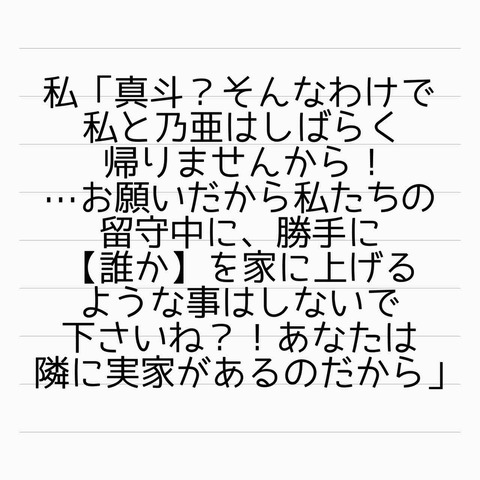 私「真斗？そんなわけで
私と乃亜はしばらく
帰りませんから！
…お願いだから私たちの
留守中に、勝手に
【誰か】を家に上げる
ような事はしないで
下さいね？！あなたは
隣に実家があるのだから」